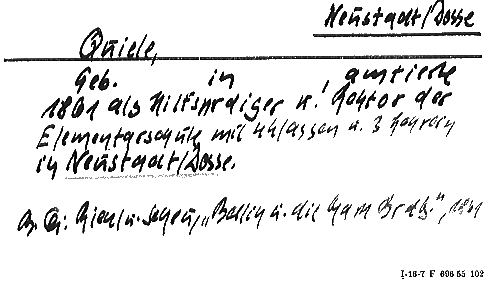 Neustadt/Dosse
Quiele,
Geb. in , amtierte
1861 als Hilfsprediger u. Rektor der
Elementarschule mit 4 Klassen u. 3 Lehrern
in Neustadt/Dosse.
"Berlin u. die Mark Brdbg.", 1861
I-16-7 F 696 55 102